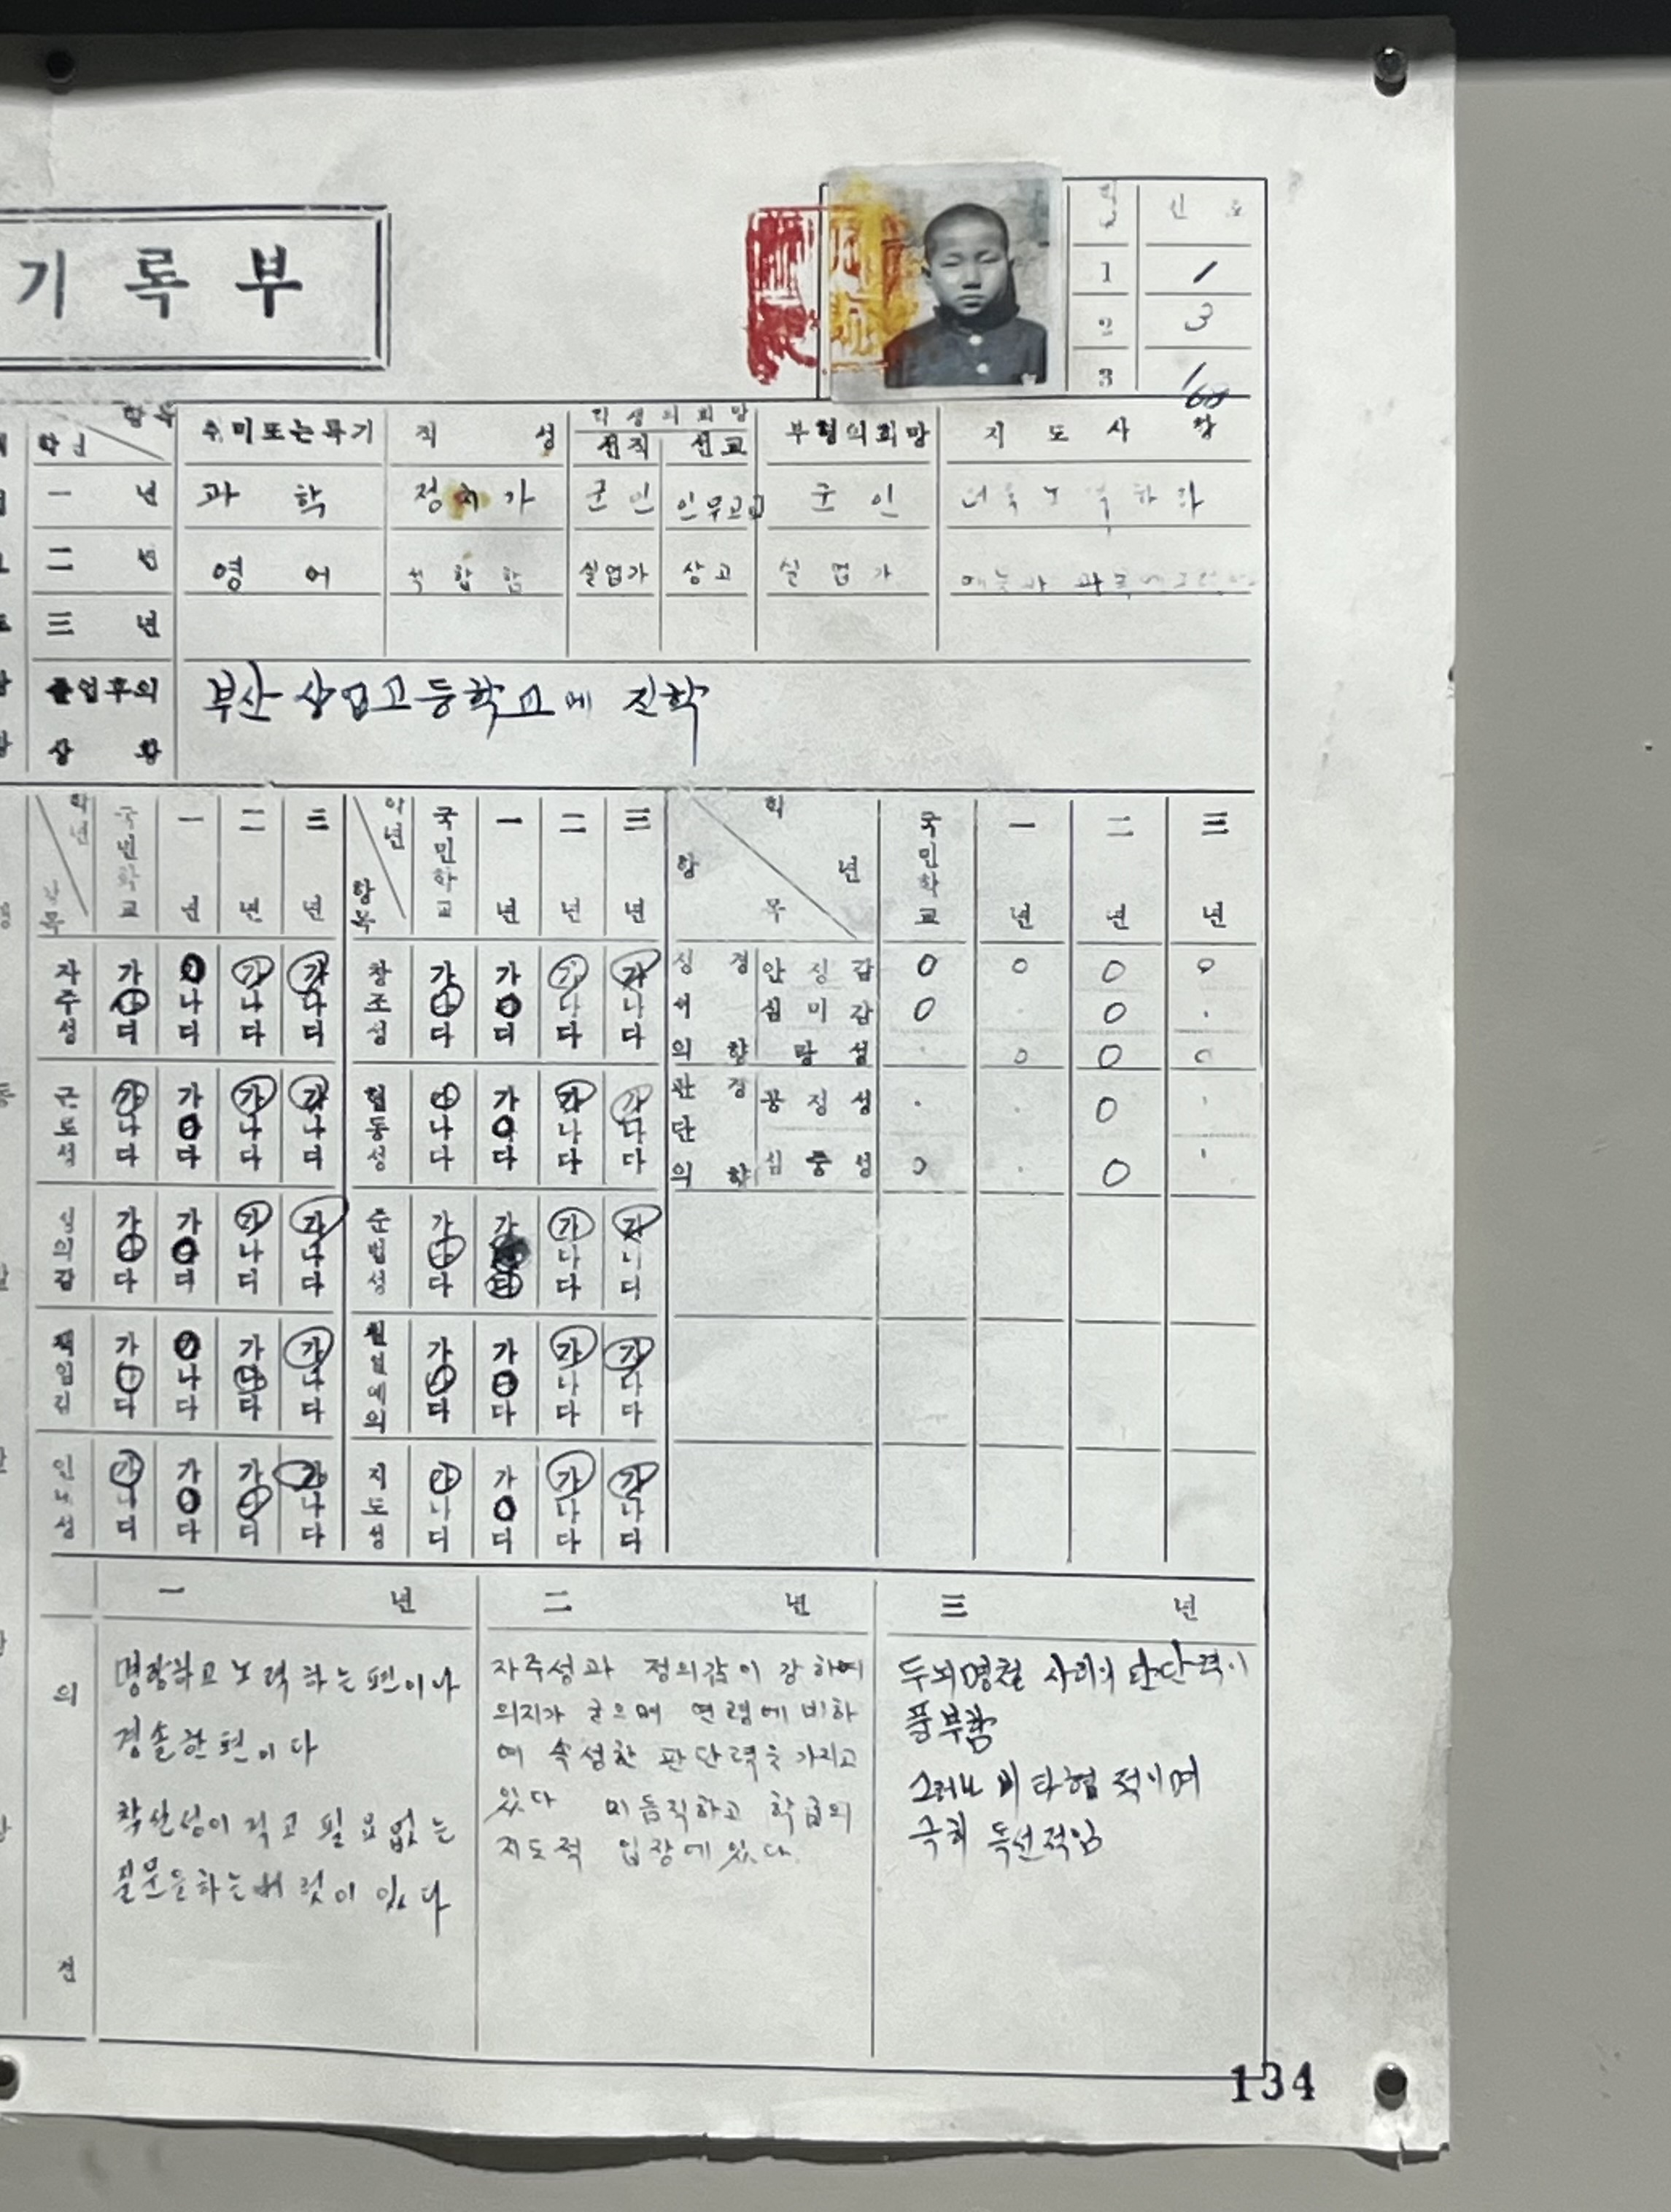 기록부
1 1
2 3
3
학년 취미또는특기 적성 학생의희망 부형의희망 지도사항
선직 선교
一년 과학 정치가 군인 군인
二년 영어 적합함 실업가 상고 실업가
三년
졸업후의 상황 부산상업고등학교에 진학
학년 국민학교 一년 二년 三년 학년 항목 국민학교 一년 二년 三년 학년 항목 국민학교 一년 二년 三년
자주성 가 나 다 가 나 다 가 나 다 가 나 다 창조성 가 나 다 가 나 다 가 나 다 가 나 다
근로성 가 나 다 가 나 다 가 나 다 가 나 다 협동성 가 나 다 가 나 다 가 나 다 가 나 다
정의감 가 나 다 가 나 다 가 나 다 가 나 다 준법성 가 나 다 가 나 다 가 나 다
책임감 가 나 다 가 나 다 가 나 다 가 나 다 가 나 다 가 나 다 가 나 다 가 나 다
가 나 다 가 나 다 가 나 다 가 나 다 지도성 가 나 다 가 나 다 가 나 다 가 나 다
안심감
심미감
공정성
신중성
의견
一년
명랑하고 노력하는편이나
경솔한편이다
착산성이 적고 필요없는
질문을하는버릇이 있다
二년
자주성과 정의감이 강하며
의지가 굳으며 연령에 비하
여 속성한 판단력을 가지고
있다 믿음직하고 학급의
지도적 입장에 있다.
三년
두뇌명철 사리의 판단력이
풍부함
그러나 비타협적이며
극히 독선적임
134